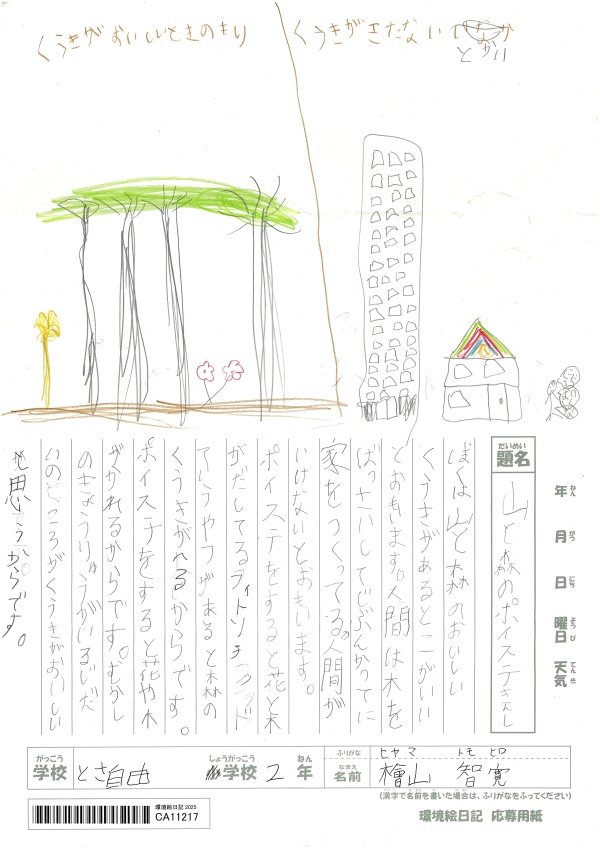 くうきがおいしいときのもり
くうきがきたない
とかい
だいめい
題名
山と森のポイステきんし
ぼくは山と森のおいしい
くうきがあるとこがいい
とおもいます。人間は木を
ばっさいしてじぶんかってに
家をつくってる。人間が
いけないとおもいます。
ポイステをすると花と木
がだしてる
てゆうやつがあると森の
くうきがれるからです。
ポイステをすると花や木
がかれるからです。むかし
のきょうりゅうがいるじだ
いのところがくうきがおいしい
と思うからです。
年 ねん
月 がつ
日 にち
曜日 ようび
天気 てんき
がっこう
学校
とさ自由
しょうがっこう
小学校
2
ねん
年
ふりがな
ヒヤマ トモヒロ
なまえ
名前
檜山 智寛
(漢字で名前を書いた場合は、ふりがなをふってください)
環境絵日記 2025
CA11217
環境絵日記 応募用紙